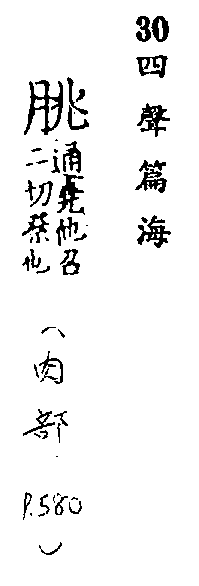 30四聲篇海
朓
通堯他召
二切祭也
(肉部 P.580)